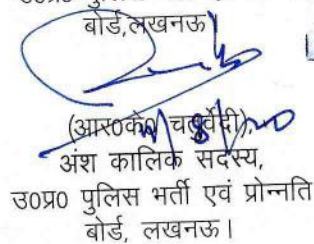 बोर्ड,लखनऊ
(आर०के० चतुर्वेदी),
अंश कालिक सदस्य,
उ०प्र० पुलिस भर्ती एवं प्रोन्नति
बोर्ड, लखनऊ।